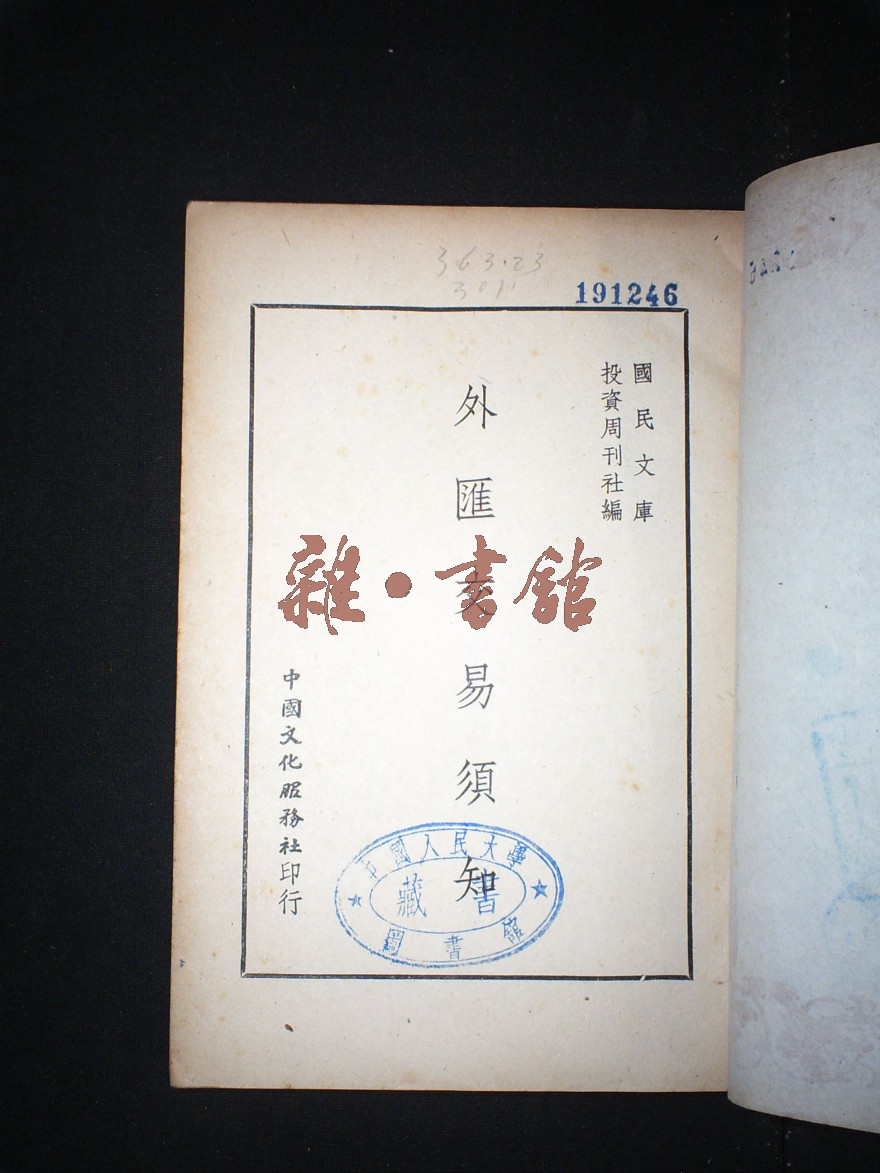 363.23
191246
國民文庫
投資周刊社編
外匯交易須知
雜·書館
中國文化服務社印行
中國人民大學
藏書
圖書館